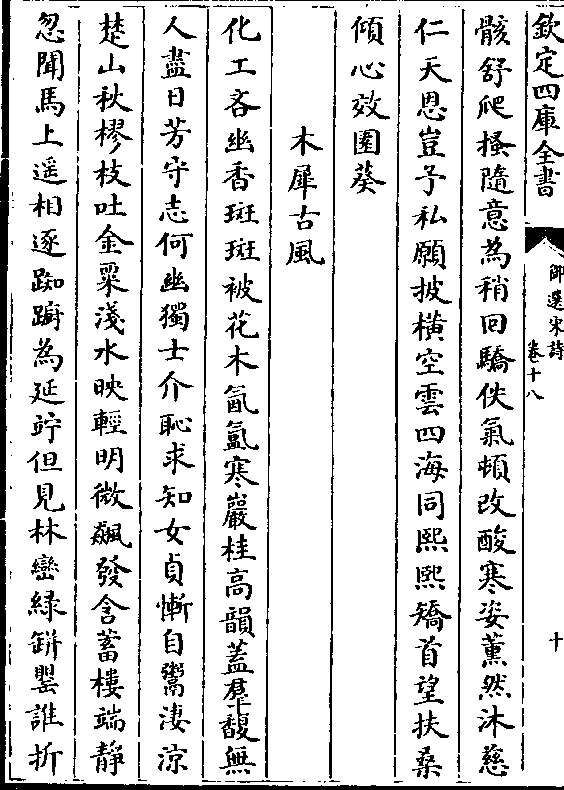 欽定四庫全書
御選宋詩
卷十八
十
骸舒爬搔隨意為稍回驕佚氣頓改酸寒姿薰然沐慈
仁天恩豈予私願披橫空雲四海同熙熙矯首望扶桑
傾心效園葵
木犀古風
化工吝幽香斑斑被花木氤氳寒巖桂高韻蓋羣馥無
人盡日芳守志何幽獨士介恥求知女貞慚自鬻淒涼
楚山秋樛枝吐金粟淺水映輕明微飆發含蓄樓端靜
忽聞馬上遥相逐踟躕為延竚但見林巒緑缾罌誰折